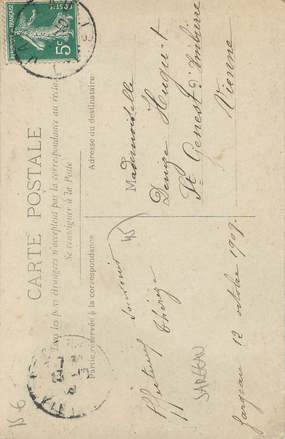 CARTE POSTALE
Tous les pays étrangers n'acceptent pas la correspondance au recto
Se renseigner à la Poste
Partie réservée à la correspondance
Adresse du destinataire
5c
Souvenir
affectueux
Thérèze
Jargeau 12 octobre 1909.
JARGEAU
Mademoiselle
Denise Huguet
St Genest d'Ambière
Vienne
15 €